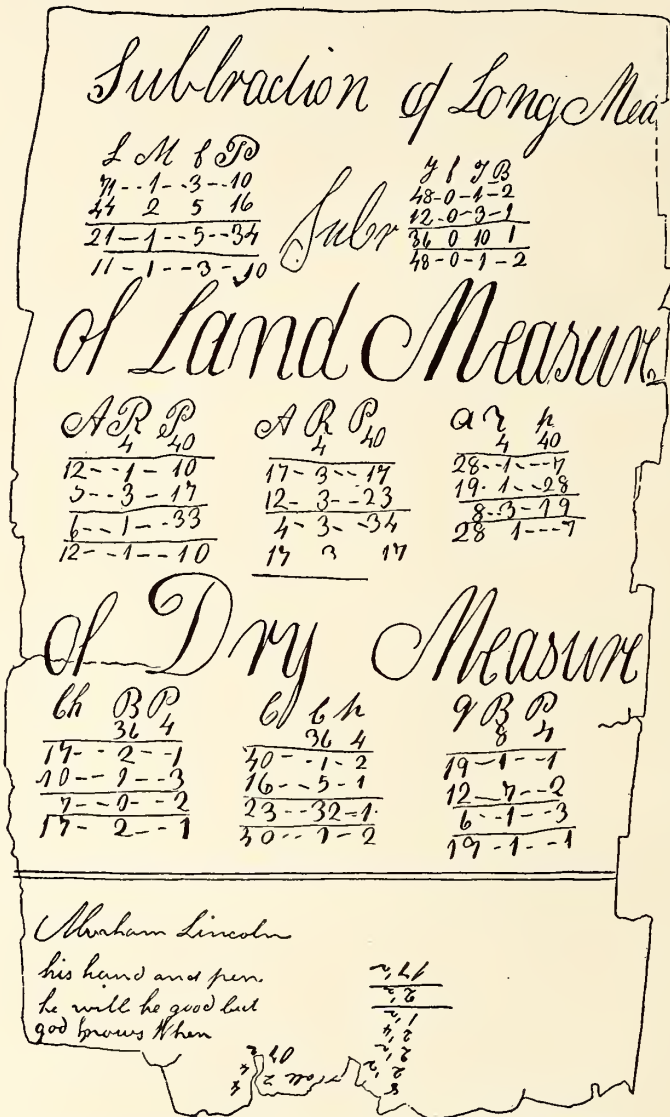 Subtraction of Long Mea
L M f P
71--1--3--10
44 2 5 16
21--1--5--34
11-1--3-10
Subr
Y f J B
48-0-1-2
12-0-3-1
36 0 10 1
48-0-1-2
of Land Measure
A R P
4 40
12--1-10
5--3-17
6--1--33
12--1--10
A R P
4 40
17-3--17
12-3--23
4-3--34
17 3 17
a r p
4 40
28--1---7
19-1--28
8-3-19
28 1---7
of Dry Measure
Ch B P
36 4
17--2--1
10--1--3
7--0--2
17-2--1
C b p
36 4
40--1-2
16--5-1
23--32-1
30--1-2
q B P
8 4
19-1--1
12-7--2
6-1--3
19-1--1
Abraham Lincoln
his hand and pen.
he will be good but
god knows When